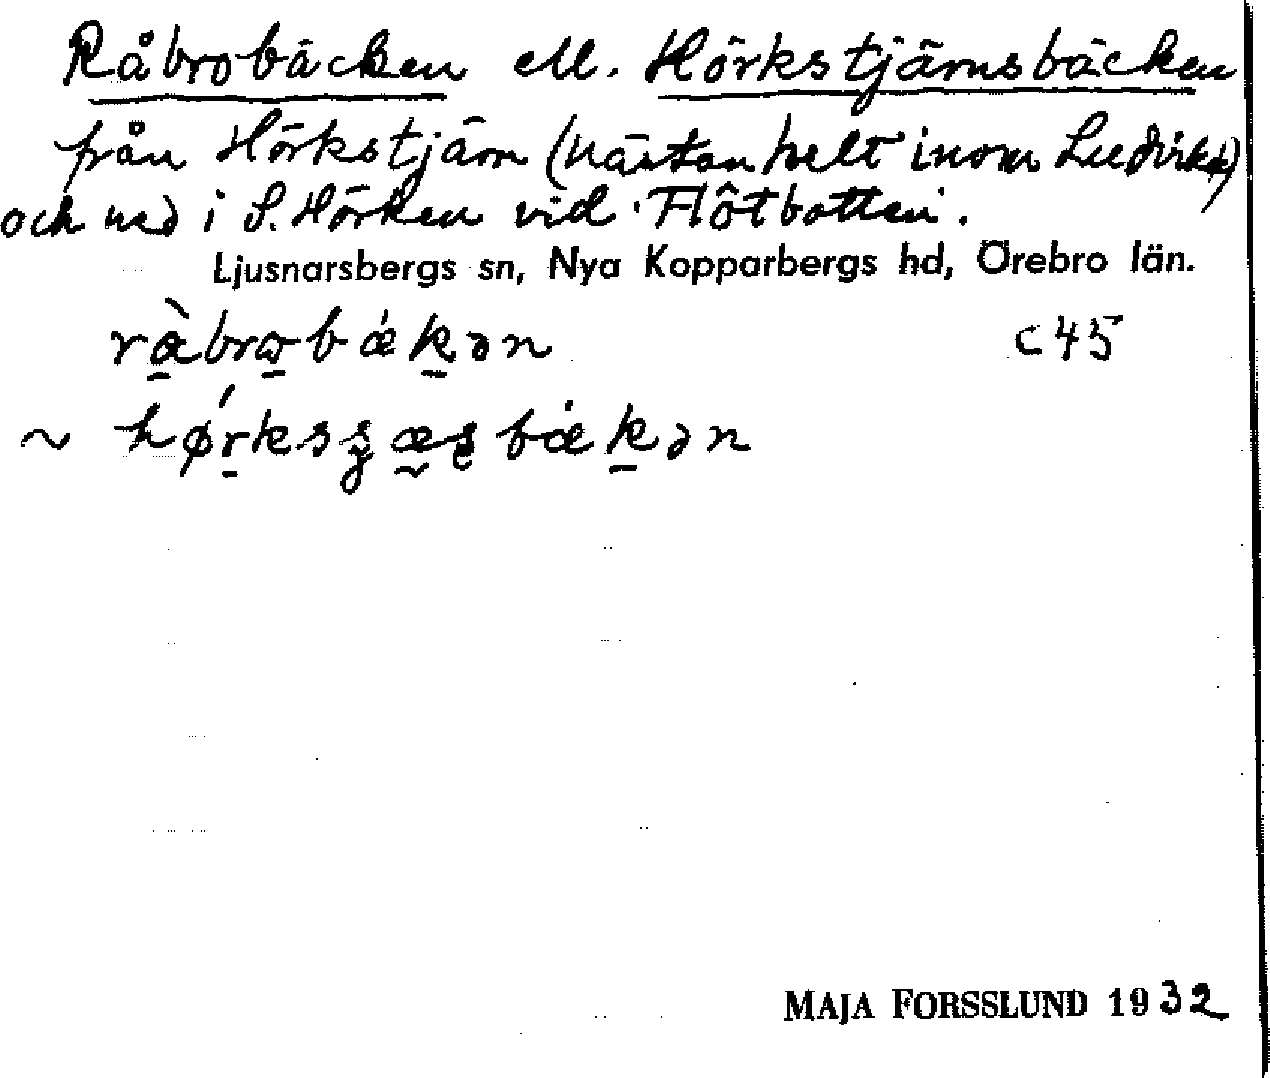 Råbrobäcken ell. Hörkstjärnsbäcken
från Hörkstjärn (nästan helt inom Ludvika)
och ned i S. Hörken vid Flötbotten.
Ljusnarsbergs sn, Nya Kopparbergs hd, Örebro län.
C 45
~
MAJA FORSSLUND 1932